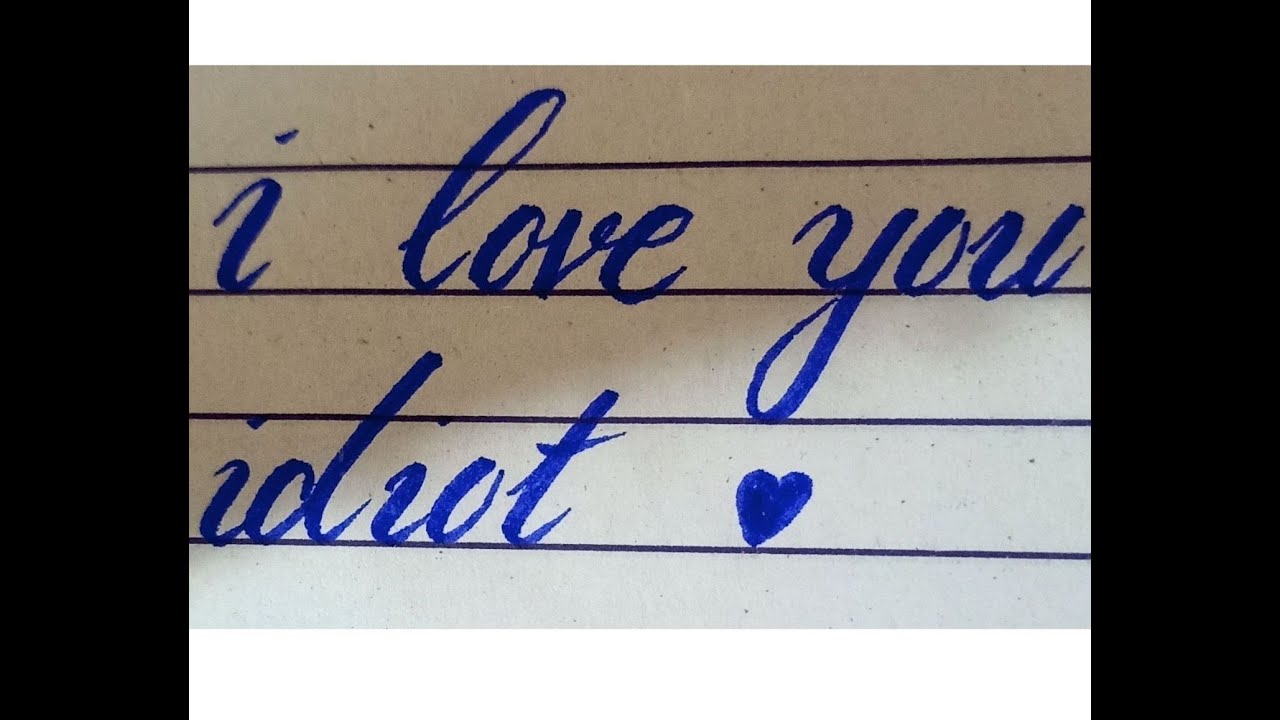 i love you
idiot ♥